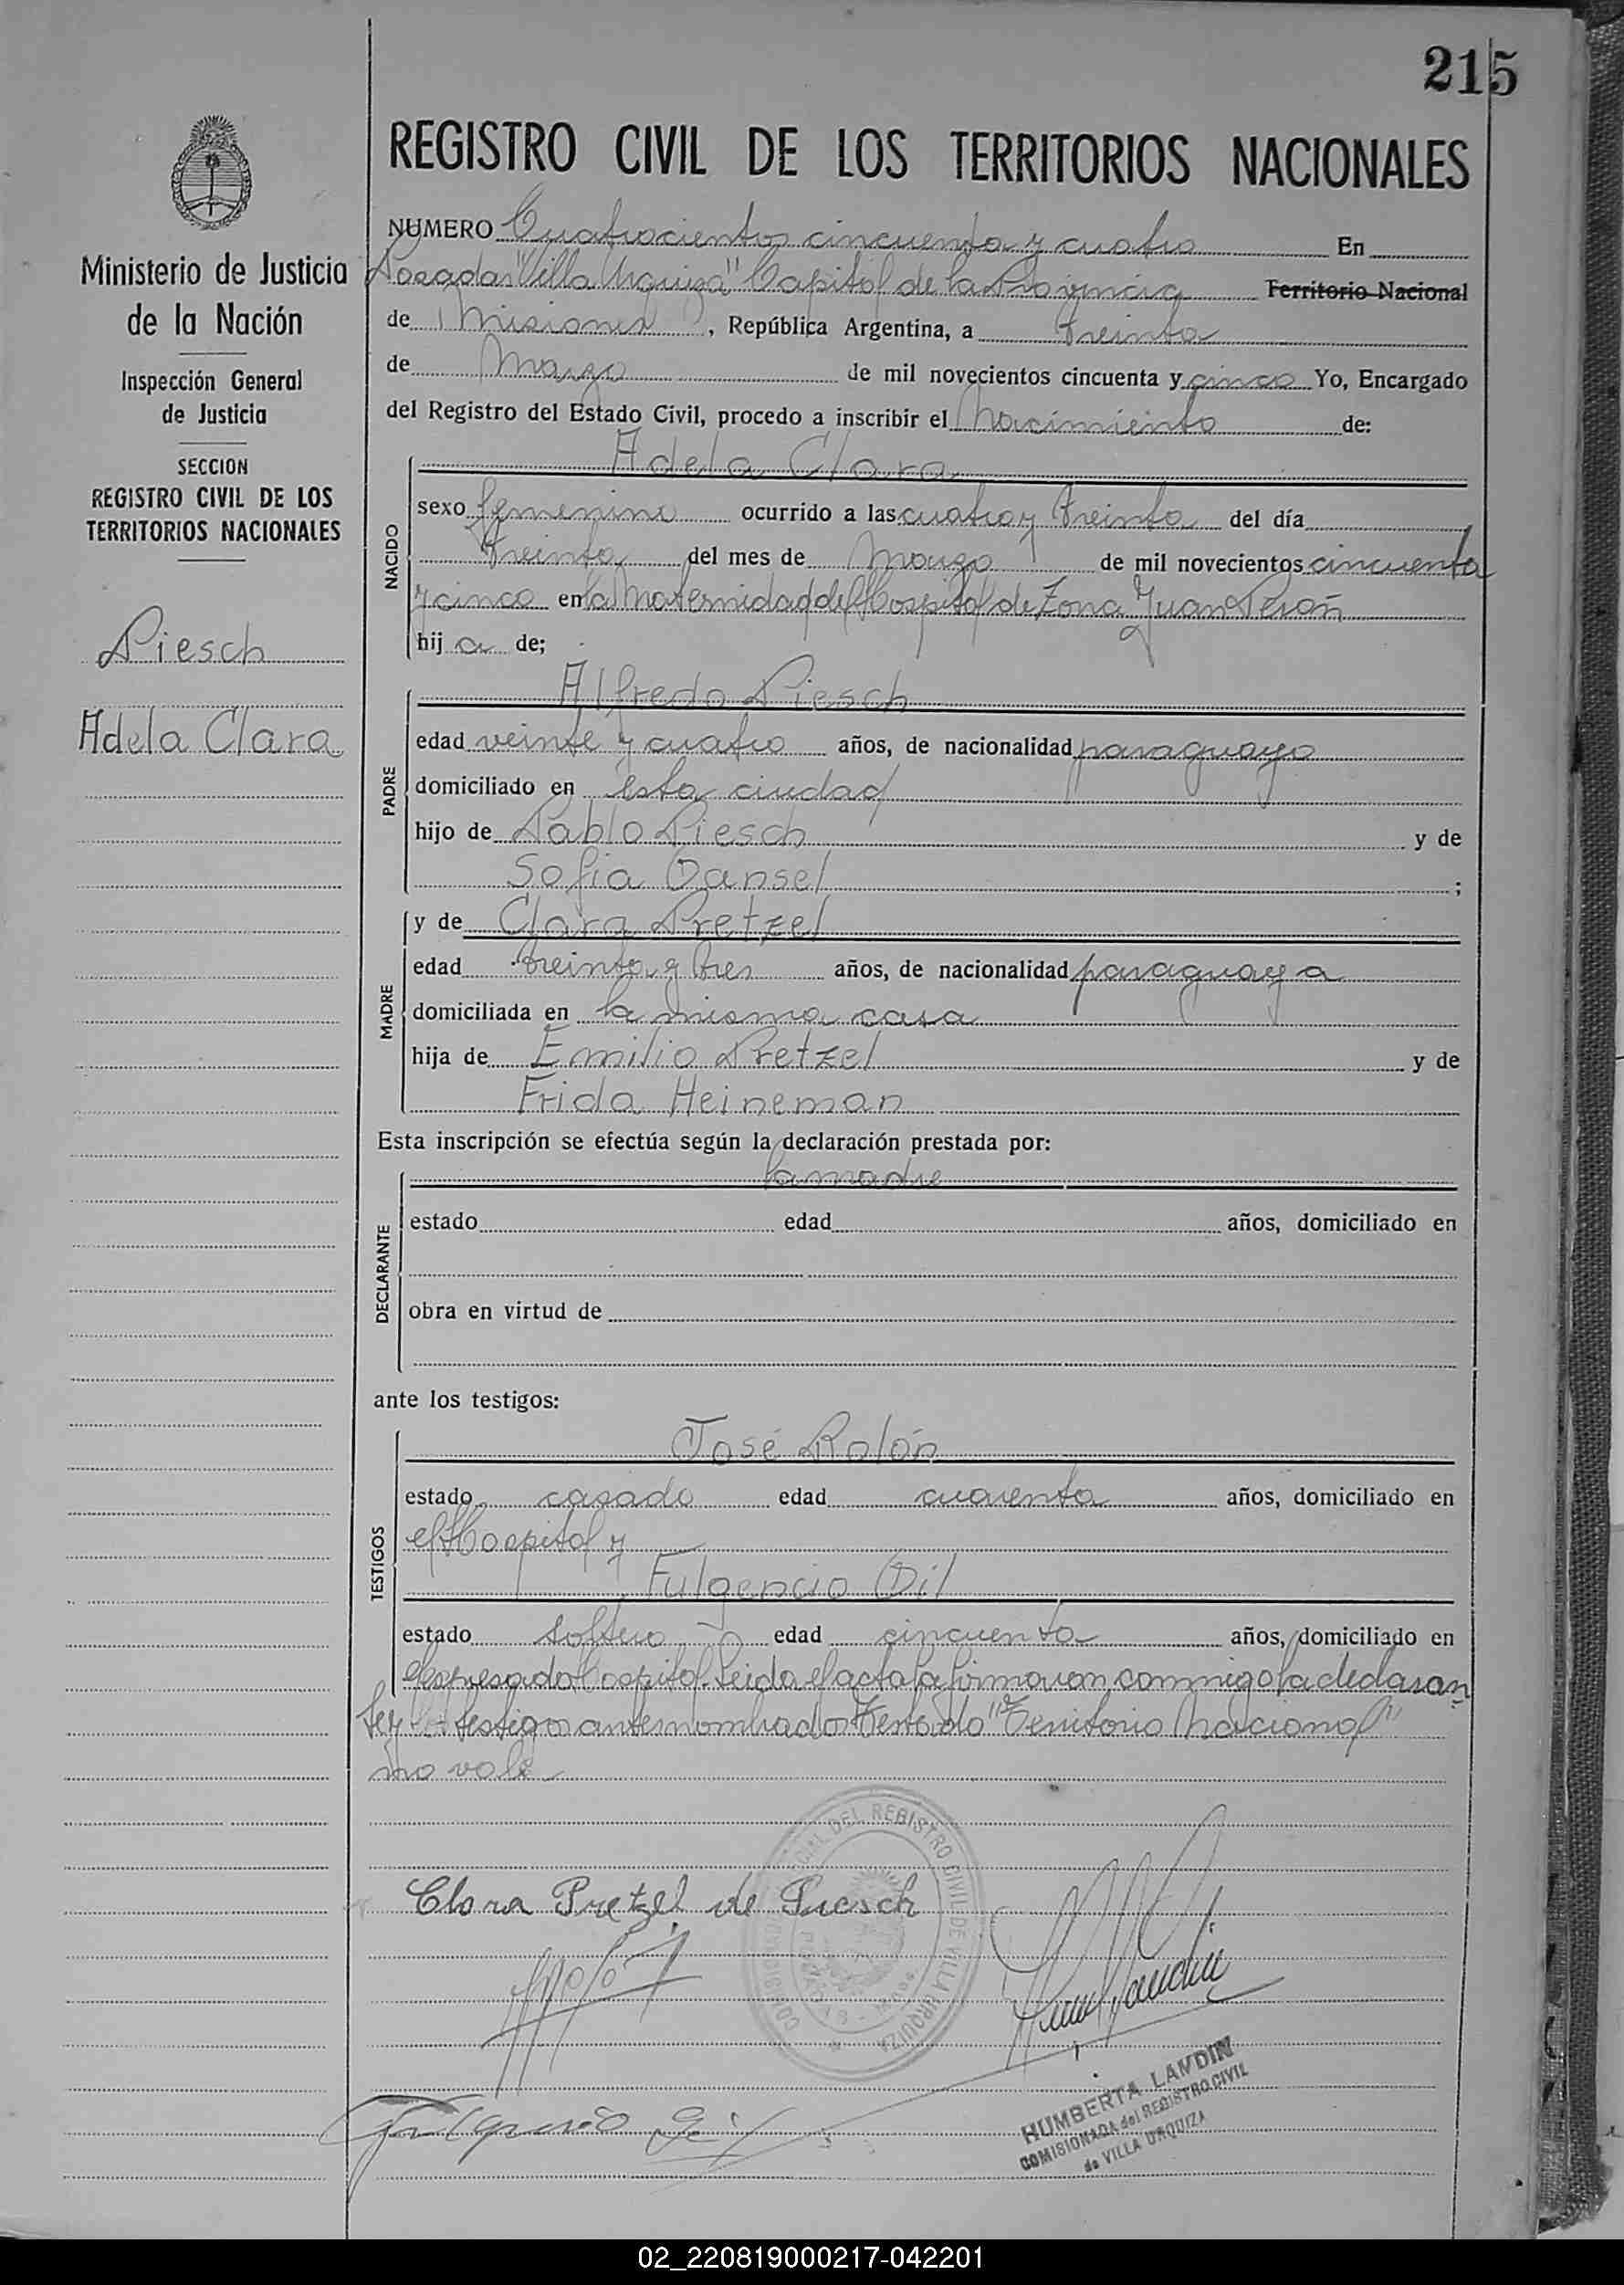 215
REGISTRO CIVIL DE LOS TERRITORIOS NACIONALES
Ministerio de Justicia
de la Nación
Inspección General
de Justicia
SECCION
REGISTRO CIVIL DE LOS
TERRITORIOS NACIONALES
Piesch
Adela Clara
NUMERO Cuatrocientos cincuenta y cuatro En
Posadas "Villa Urquiza" Capital de la Provincia Territorio Nacional
de Misiones, República Argentina, a treinta
de Marzo de mil novecientos cincuenta y cinco Yo, Encargado
del Registro del Estado Civil, procedo a inscribir el Nacimiento de:
Adela Clara
NACIDO
sexo femenino ocurrido a las cuatro y treinta del día
treinta del mes de Marzo de mil novecientos cincuenta
y cinco en la Maternidad del Hospital de Zona Juan Perón
hija de;
Alfredo Piesch
PADRE
edad veinte y cuatro años, de nacionalidad paraguayo
domiciliado en ésta ciudad
hijo de Pablo Piesch y de
Sofia Gansel ;
y de Clara Pretzel
MADRE
edad treinta y tres años, de nacionalidad paraguaya
domiciliada en la misma casa
hija de Emilio Pretzel y de
Frida Heineman
Esta inscripción se efectúa según la declaración prestada por:
la madre
DECLARANTE
estado edad años, domiciliado en
obra en virtud de
ante los testigos:
José Rolón
TESTIGOS
estado casado edad cuarenta años, domiciliado en
el Hospital y
Fulgencio Gil
estado soltero edad cincuenta años, domiciliado en
el expresado Hospital. Leida el acta la firmaron conmigo la declaran
te y los testigos antes nombrados Testado "Territorio Nacional"
no vale
Clara Pretzel de Piesch
Fulgencio Gil
DEL REGISTRO CIVIL DE VILLA URQUIZA
HUMBERTA LANDIN
COMISIONADA del REGISTRO CIVIL
de VILLA URQUIZA
02_220819000217-042201